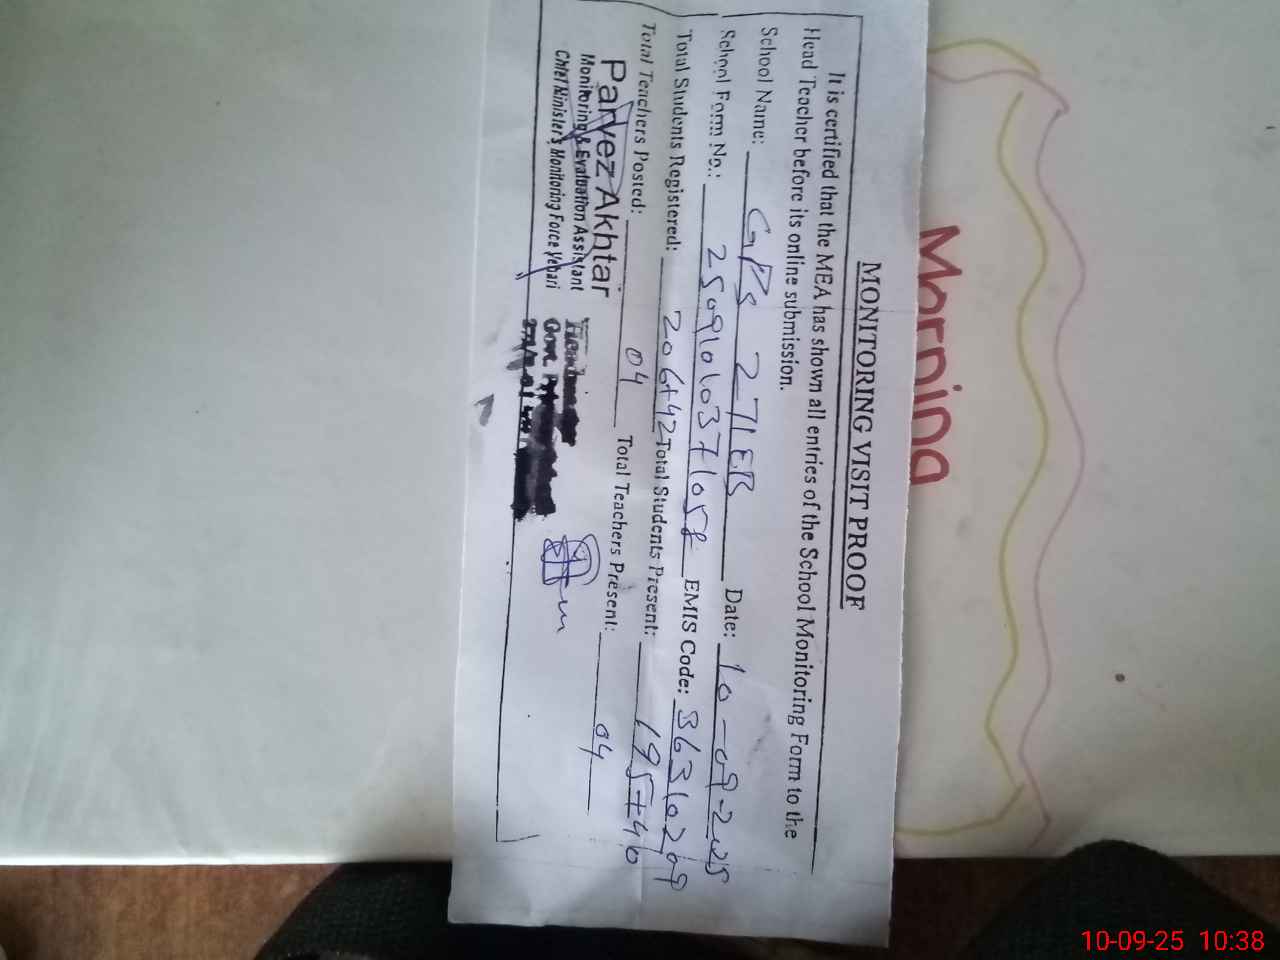 MONITORING VISIT PROOF
It is certified that the MEA has shown all entries of the School Monitoring Form to the
Head Teacher before its online submission.
School Name: GPS 271EB Date: 10-09-2025
School Form No.: EMIS Code: 36310209
Total Students Registered: 206+42 Total Students Present: 195+40
Total Teachers Posted: 04 Total Teachers Present: 04
Parvez Akhtar
Monitoring & Evaluation Assistant
Chief Minister's Monitoring Force Vehari
Morning
10-09-25 10:38